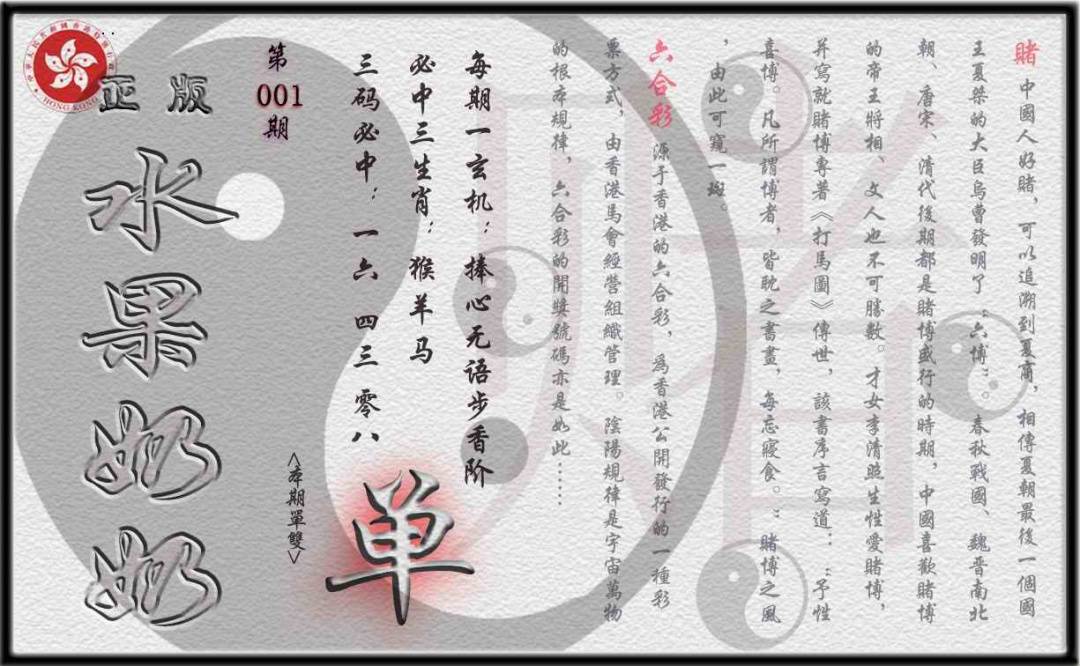 賭 中國人好賭，可以追溯到夏商，相傳夏朝最後一個國
王夏桀的大臣烏曹發明了“六博”。春秋戰國、魏晋南北
朝、唐宋、清代後期都是賭博盛行的時期，中國喜歡賭博
的帝王將相、文人也不可勝數。才女李清照生性愛賭博，
并寫就賭博專著《打馬圖》傳世，該書序言寫道：“予性
喜博。凡所謂博者，皆耽之書畫，每忘寢食。”賭博之風
，由此可窺一斑。
六合彩 源于香港的六合彩，爲香港公開發行的一種彩
票方式，由香港馬會經營組織管理。陰陽規律是宇宙萬物
的根本規律，六合彩的開獎號碼亦是如此……
每期一玄机：捧心无语步香阶
必中三生肖：猴羊马
三码必中：一六 四三 零八
单
<本期單雙>
第
001
期
正版
水果奶奶
HONG KONG